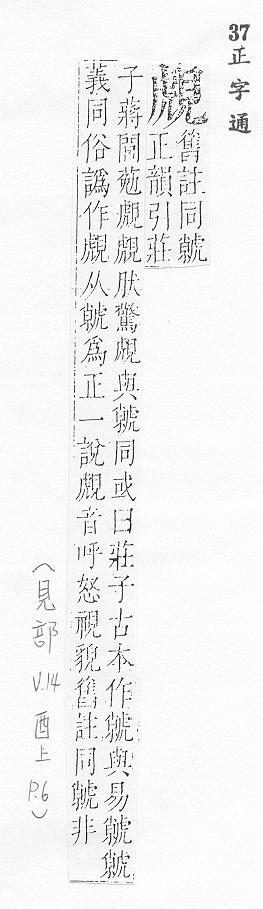 37正字通
覤
舊註同虩
正韻引莊
子蔣閭葂覤覤肰驚覤與虩同或曰莊子古本作虩與易虩虩
義同俗譌作覤从虩為正一說覤音呼怒視貌舊註同虩非
(見部 V.14 酉上 P.6)